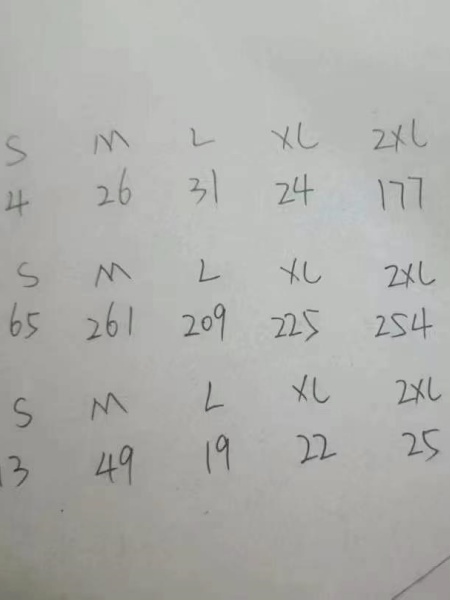 S M L XL 2XL
4 26 31 24 177
S M L XL 2XL
65 261 209 225 254
S M L XL 2XL
13 49 19 22 25